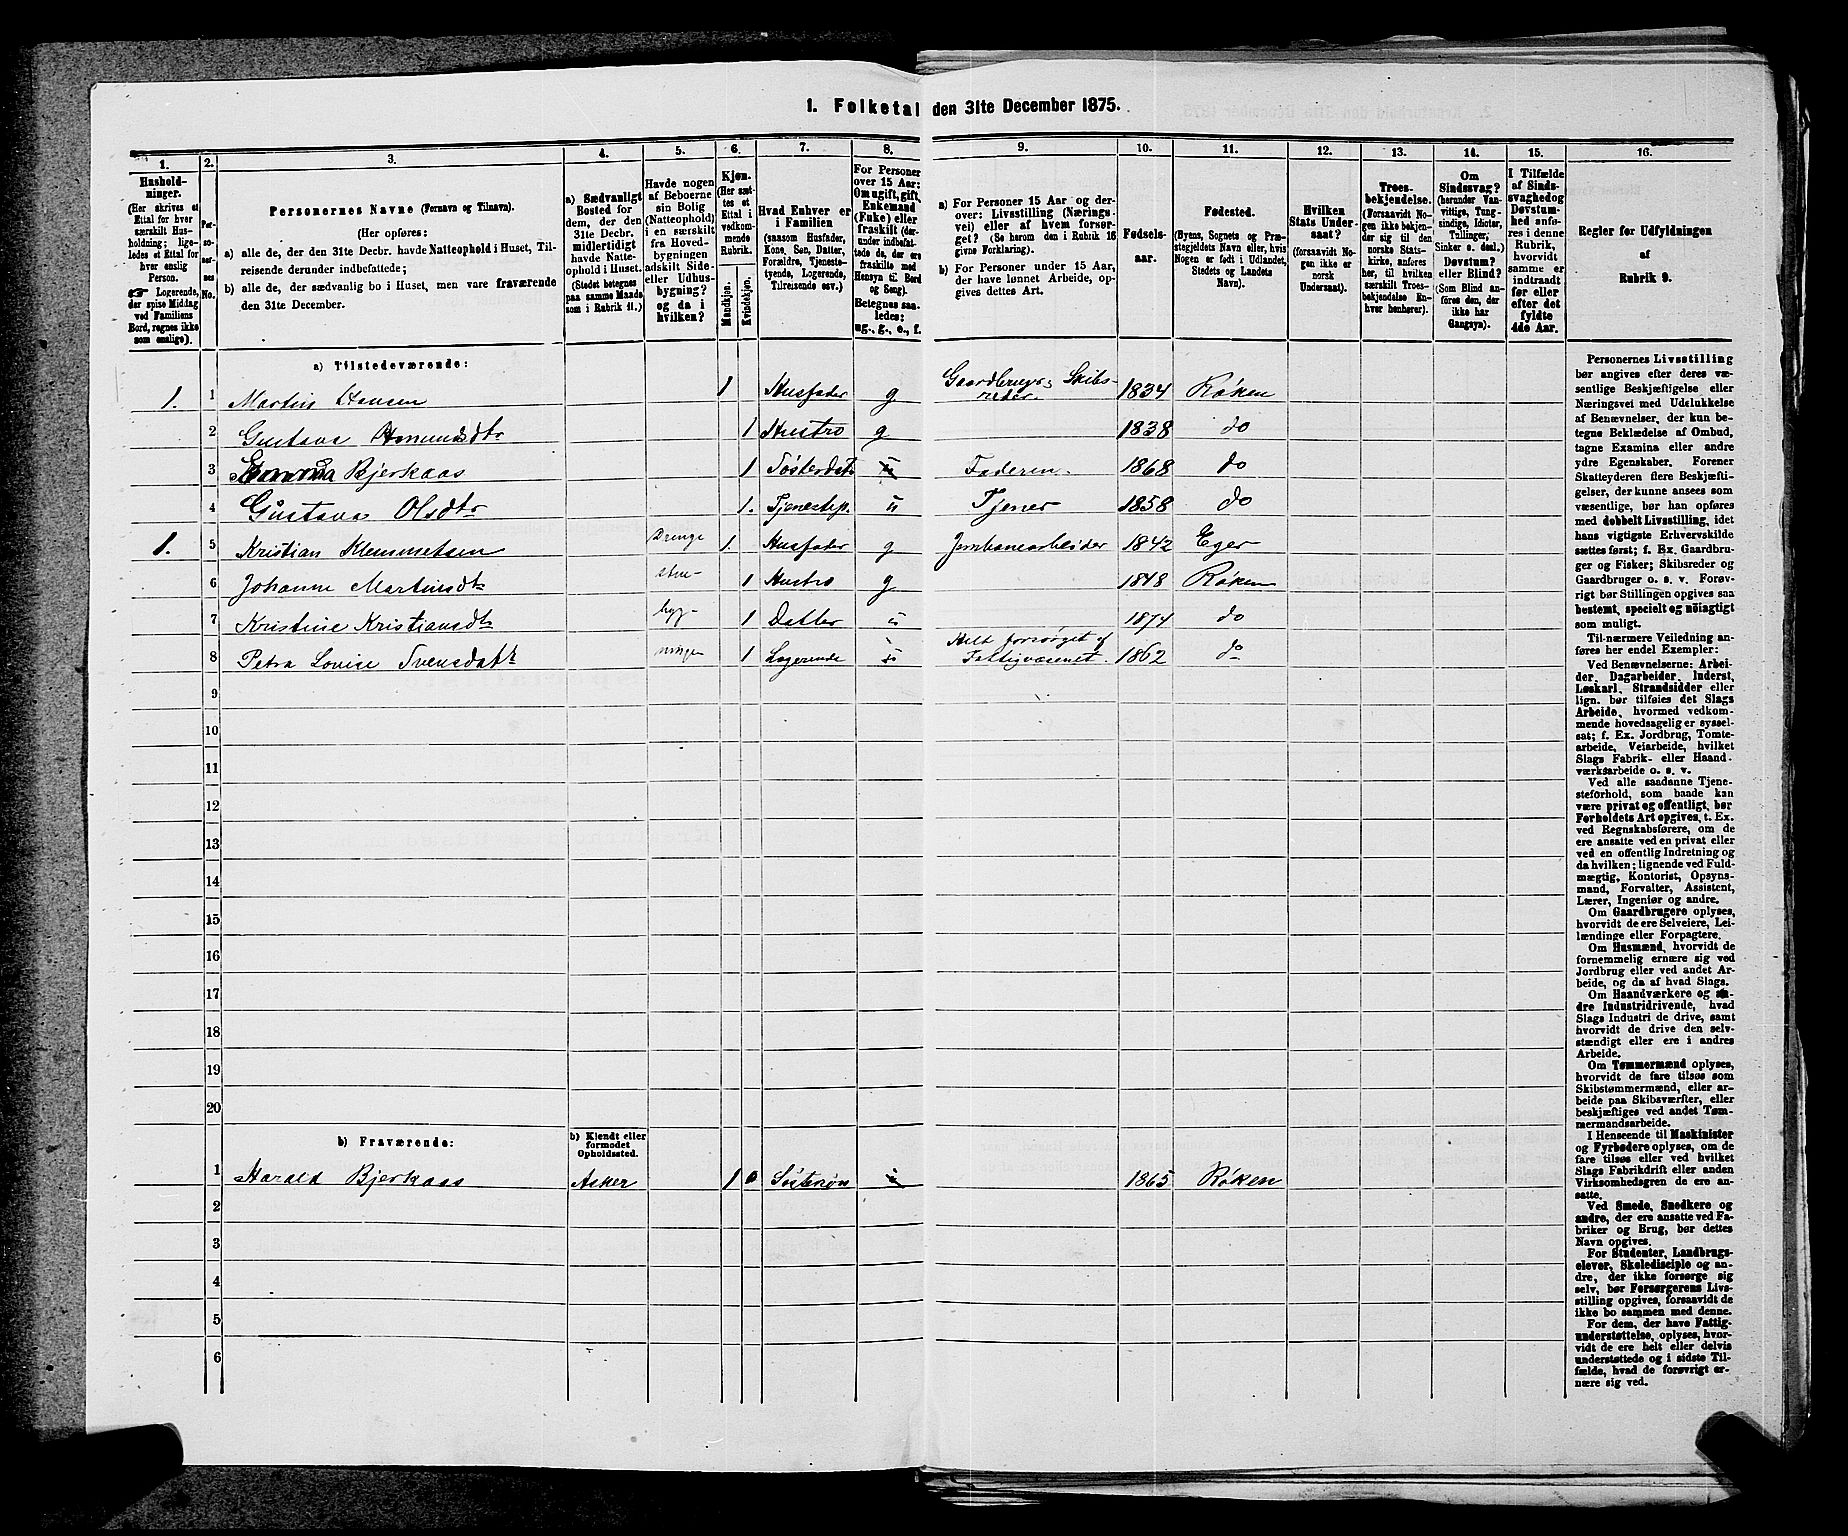 1. Folketal den 31te December 1875.
1. 2. 3. 4. 5. 6. 7. 8. 9. 10. 11. 12. 13. 14. 15. 16.
Hushold-
ninger.
(Her skrives et
Ettal for hver
særskilt Hus-
holdning; lige-
ledes et Ettal for
hver enslig
Person.
☞ Logerende,
der spise Middag
ved Familiens
Bord, regnes ikke
som enslige).
Per-
so-
ner-
nes
No.
Personernes Navne (Fornavn og Tilnavn).
(Her opføres:
a) alle de, der den 31te Decbr. havde Natteophold i Huset, Til-
reisende derunder indbefattede;
b) alle de, der sædvanlig bo i Huset, men vare fraværende
den 31te December.
a) Sædvanligt
Bosted for
dem, der den
31te Decbr.
midlertidigt
havde Natte-
ophold i Huset.
(Stedet betegnes
paa samme Maade
som i Rubrik 11.)
Havde nogen
af Beboerne
sin Bolig
(Natteophold)
i en særskilt
fra Hoved-
bygningen
adskilt Side-
eller Udhus-
bygning?
og da i
hvilken?
Kjøn.
(Her sæt-
tes et
Ettal i
vedkom-
mende
Rubrik.
Mandkjøn.
Kvindekjøn.
Hvad Enhver er
i Familien
(saasom Husfader,
Kone, Søn, Datter,
Forældre, Tjeneste-
tyende, Logerende,
Tilreisende osv.)
For Personer
over 15 Aar:
Om ugift, gift,
Enkemand
(Enke) eller
fraskilt (der-
under indbefat-
tede de, der ere
fraskilte med
Hensyn til Bord
og Seng).
Betegnes saa-
ledes:
ug., g., e., f.
a) For Personer 15 Aar og der-
over: Livsstilling (Nærings-
vei) eller af hvem forsør-
get? (Se herom den i Rubrik 16
givne Forklaring).
b) For Personer under 15 Aar,
der have lønnet Arbeide, op-
gives dettes Art.
Fødsels-
aar.
Fødested.
(Byens, Sognets og Præ-
stegjeldets Navn eller, hvis
Nogen er født i Udlandet,
Stedets og Landets
Navn).
Hvilken
Stats Under-
saat?
(forsaavidt No-
gen ikke er
norsk
Undersaat).
Troes-
bekjendelse.
(Forsaavidt No-
gen ikke bekjen-
der sig til den
norske Stats-
kirke, anføres
her, til hvilken
særskilt Troes-
bekjendelse En-
hver henhører).
Om
Sindssvag?
(herunder Van-
vittige, Tung-
sindige, Idioter,
Tullinger,
Sinker o. desl.)
Døvstum?
eller Blind?
(Som Blind an-
føres den, der
ikke har
Gangsyn).
I Tilfælde
af Sinds-
svaghed og
Døvstum-
hed anfø-
res i denne
Rubrik,
hvorvidt
samme er
indtraadt
før eller
efter det
fyldte
4de Aar.
Regler før Udfyldningen
af
Rubrik 9.
a) Tilstedeværende:
1. 1 Martin Hansen 1 Husfader g Gaardbruger, Skibs-
reder. 1834 Røken
2 Gustava Amundsdtr 1 Hustro g 1838 do
3 Bjerkaas 1 Søsterdatr Faderen. 1868 do
4 Gustava Olsdtr 1. Tjenestep. u Tjener 1858 do
1. 5 Kristian Klemmetsen Drenge 1. Husfader g Jernbanearbeider 1842 Eger
6 Johanne Martinsdtr stue- 1 Hustro g 1848 Røken
7 Kristine Kristiansdtr byg- 1 Datter u 1874 do
8 Petra Lovise Svensdatr ningen 1 Logerende Helt forsørget af
Fattigvæsenet. 1862 do
9
10
11
12
13
14
15
16
17
18
19
20
b) Fraværende:
b) Kjendt eller
formodet
Opholdssted.
1 Harald Bjerkaas Asker 1 0 Søstersøn 1865 Røken
2
3
4
5
6
Personernes Livsstilling
bør angives efter deres væ-
sentlige Beskjæftigelse eller
Næringsvei med Udelukkelse
af Benævnelser, der kun be-
tegne Beklædelse af Ombud,
tagne Examina eller andre
ydre Egenskaber. Forener
Skatteyderen flere Beskjæfti-
gelser, der kunne ansees som
væsentlige, bør han opføres
med dobbelt Livsstilling, idet
hans vigtigste Erhvervskilde
sættes først; f. Ex. Gaardbru-
ger og Fisker; Skibsreder og
Gaardbruger o. s. v. Forøv-
rigt bør Stillingen opgives saa
bestemt, specielt og nöiagtigt
som muligt.
Til nærmere Veiledning an-
føres her endel Exempler:
Ved Benævnelserne: Arbei-
der, Dagarbeider, Inderst,
Løskarl, Strandsidder eller
lign. bør tilføies det Slags
Arbeide, hvormed vedkom-
mende hovedsagelig er syssel-
sat; f. Ex. Jordbrug, Tomte-
arbeide, Veiarbeide, hvilket
Slags Fabrik- eller Haand-
værksarbeide o. s. v.
Ved alle saadanne Tjene-
steforhold, som baade kan
være privat og offentligt, bør
Forholdets Art opgives, t. Ex.
ved Regnskabsførere, om de
ere ansatte ved en privat eller
ved en offentlig Indretning og
da hvilken; lignende ved Fuld-
mægtig, Kontorist, Opsyns-
mand, Forvalter, Assistent,
Lærer, Ingeniør og andre.
Om Gaardbrugere oplyses,
hvorvidt de ere Selveiere, Lei-
lændinge eller Forpagtere.
Om Husmænd, hvorvidt de
fornemmelig ernære sig ved
Jordbrug eller ved andet Ar-
beide, og da af hvad Slags.
Om Haandværkere og an-
dre Industridrivende, hvad
Slags Industri de drive, samt
hvorvidt de drive den selv-
stændigt eller ere i andres
Arbeide.
Om Tømmermænd oplyses,
hvorvidt de fare tilsøs som
Skibstømmermænd, eller ar-
beide paa Skibsværfter, eller
beskjæftiges ved andet Tøm-
mermandsarbeide.
I Henseende til Maskinister
og Fyrbødere oplyses, om de
fare tilsøs eller ved hvilket
Slags Fabrikdrift eller anden
Virksomhedsgren de ere an-
satte.
Ved Smede, Snedkere og
andre, der ere ansatte ved Fa-
briker og Brug, bør dettes
Navn opgives.
For Studenter, Landbrugs-
elever, Skoledisciple og an-
dre, der ikke forsørge sig
selv, bør Forsørgerens Livs-
stilling opgives, forsaavidt de
ikke bo sammen med denne.
For dem, der have Fattig-
understøttelse, oplyses, hvor-
vidt de ere helt eller delvis
understøttede og i sidste Til-
fælde, hvad de forøvrigt er-
nære sig ved.